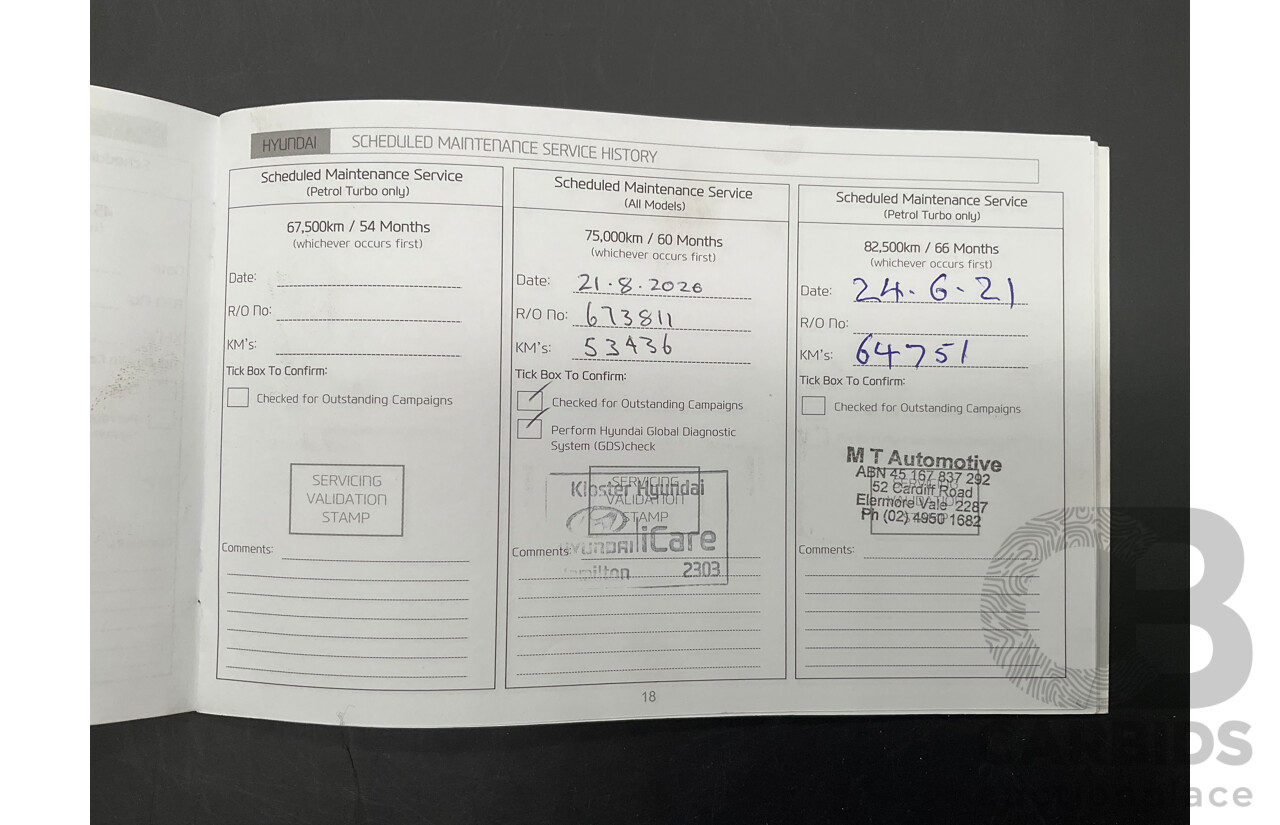 HYUNDAI SCHEDULED MAINTENANCE SERVICE HISTORY
Scheduled Maintenance Service
(Petrol Turbo only)
67,500km / 54 Months
(whichever occurs first)
Date:
R/O No:
KM's:
Tick Box To Confirm:
Checked for Outstanding Campaigns
SERVICING
VALIDATION
STAMP
Comments:
Scheduled Maintenance Service
(All Models)
75,000km / 60 Months
(whichever occurs first)
Date: 21.8.2020
R/O No: 673811
KM's: 53436
Tick Box To Confirm:
Checked for Outstanding Campaigns
Perform Hyundai Global Diagnostic
System (GDS)check
SERVICING
Kloster Hyundai
VALIDATION
STAMP
HYUNDAI iCare
Comments:
Hamilton 2303
Scheduled Maintenance Service
(Petrol Turbo only)
82,500km / 66 Months
(whichever occurs first)
Date: 24.6.21
R/O No:
KM's: 64751
Tick Box To Confirm:
Checked for Outstanding Campaigns
M T Automotive
ABN 45 167 837 292
52 Cardiff Road
Elermore Vale 2287
Ph (02) 4950 1682
Comments:
18
CARBIDS